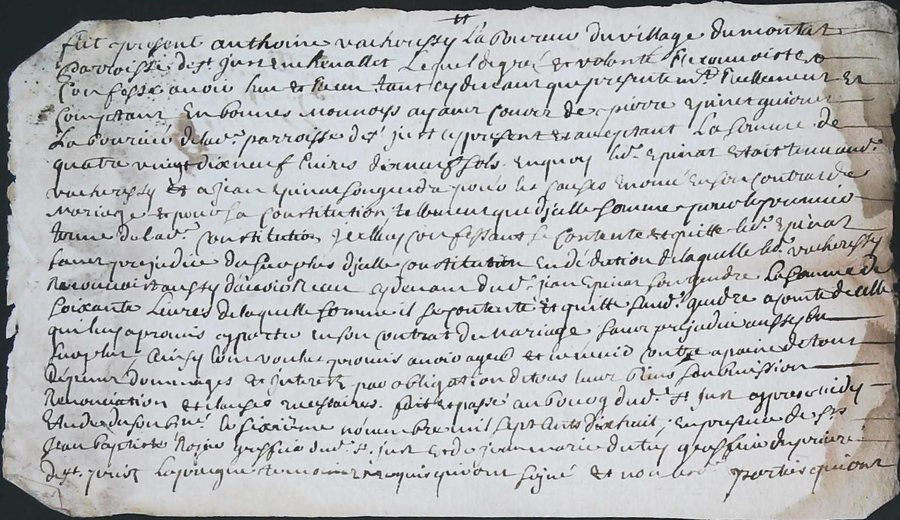 fut present anthoine vacheresse Laboureur du village dumontat
parroisse de st Just en chevallet Lequel de gré et volonté Reconnoist et
Confesse avoir heu et Receu tant cy devant que presentemt Reellement et
Comptant En bonnes monnoyes ayant cours de pierre Epinat
Laboureur de lad. parroisse de st just cy present et acceptant La somme de
quatre vingt dix neuf Livres dix neuf sols en quoy led. Epinat Estoit tenu aud.
vacheressy et a jean Epinat son gendre pour les causes En son contrat de
Mariage et pour La Constitution tellement que d'jcelle somme pour le premier
terme de lad. Constitution confessant se contente et quitte led. Epinat
sans prejudice du surplus d'jcelle constitution En deduction de laquelle led. vacheressy
Reconnoist aussy d'avoir Receu cy devant du d. jean Epinat son gendre La somme de
soixante Livres de laquelle somme il se contente et quitte sond. gendre a compte de celle
qui luy a promis en son contrat de Mariage, sans prejudice aussy du
surplus. Ainsy Lont voulu promis avoir agreé et contre a paine de tous
depens dommages et interets par obligation de tous leurs biens soubmission
Renonciation et clauses necessaires. fait et passé au bourg dud. st Just apres midy
Le sixieme novembre mil sept cents dix huit, En presence de sr
Jean baptiste Rojon greffier dud. st. just et de jean marie greffier
de st. priest lapougue temoins requis qui ont signé et non led. parties qui ont